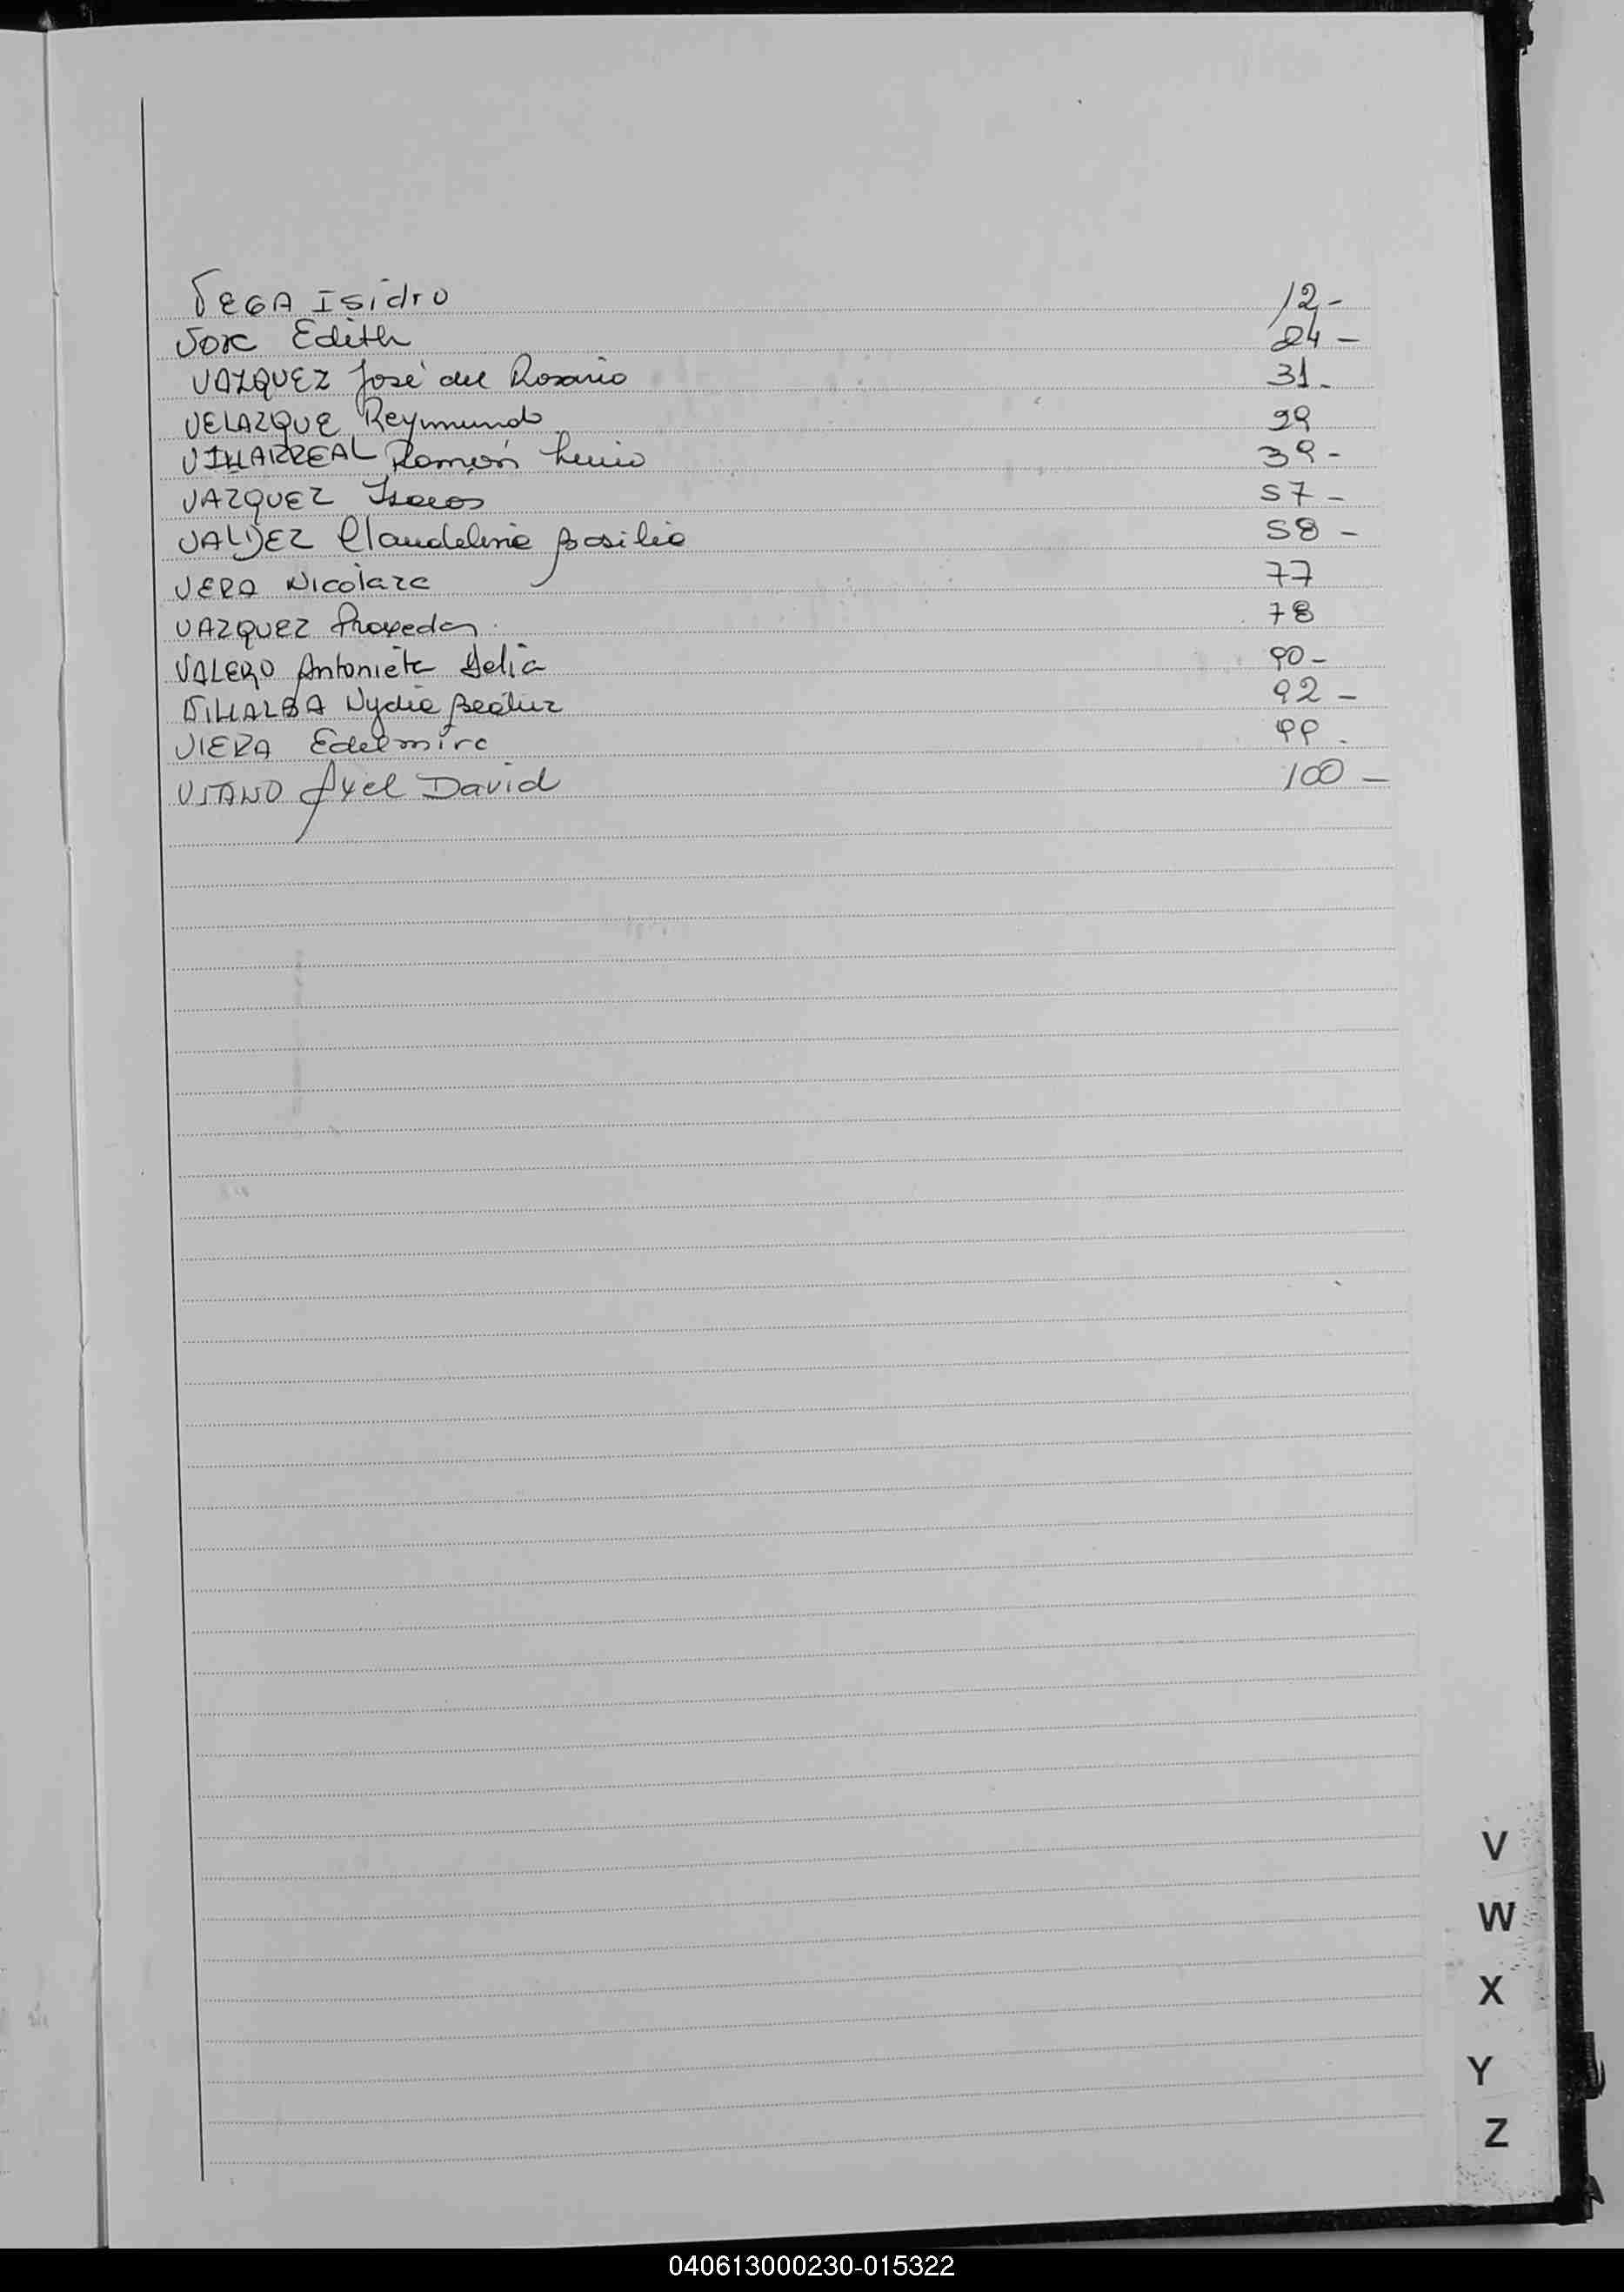 VEGA Isidro 12-
Vox Edith 24-
VAZQUEZ José del Rosario 31-
VELAZQUE Reymundo 29
VILLARREAL Ramón Lucio 39-
VAZQUEZ 57-
VALDEZ Claudelina Basilia 58-
VERA Nicolaza 77
VAZQUEZ Praxedes 78
VALERO Antonieta Delia 90-
VILLALBA Nydia Beatriz 92-
VIERA Edelmira 99.
VITANO Axel David 100-
V
W
X
Y
Z
040613000230-015322